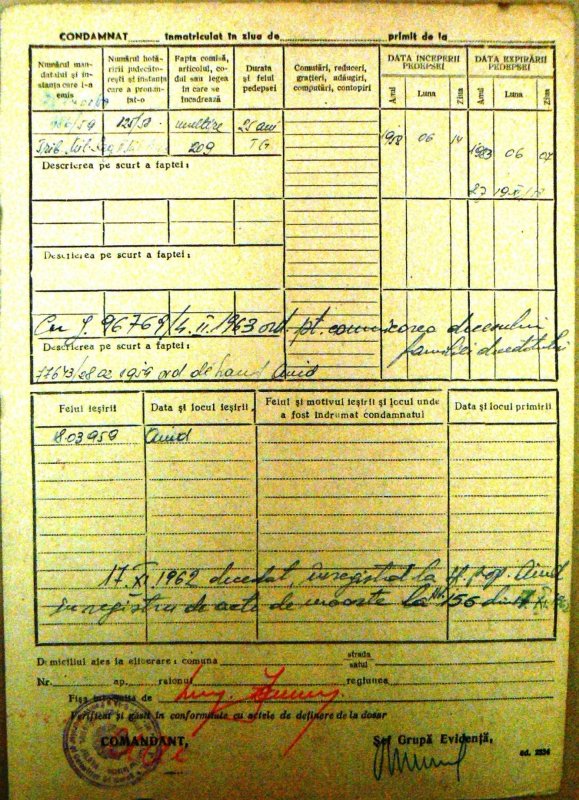 CONDAMNAT înmatriculat în ziua de primit de la
Numărul man-
datului și in-
stanța care l-a
emis
Numărul hotă-
rîrii judecăto-
rești și instanța
care a pronun-
țat-o
Fapta comisă,
articolul, co-
dul sau legea
în care se
încadrează
Durata
și felul
pedepsei
Comutări, reduceri,
grațieri, adăugiri,
computări, contopiri
DATA ÎNCEPERII
PEDEPSEI
Anul Luna Ziua
DATA EXPIRĂRII
PEDEPSEI
Anul Luna Ziua
125/59 uneltire 25 ani
Trib. Mil. 209 TG
1958 06 14
1983 06 07
Descrierea pe scurt a faptei:
Descrierea pe scurt a faptei:
Cu J. 96769/4.II.1963 ord. pt. comunicarea decesului
familiei decedatului
Descrierea pe scurt a faptei:
77643/28 02 1959 ord de Aiud
Felul ieșirii
Data și locul ieșirii
Felul și motivul ieșirii și locul unde
a fost îndrumat condamnatul
Data și locul primirii
18.03.959 Aiud
17.XI.1962 decedat, înregistrat la sf. pop. Aiud
în registru de acte de moarte la Nr 156 din
Domiciliul ales la eliberare: comuna
strada
satul
Nr. ap. raionul regiunea
Fișa întocmită de
Verificat și găsit în conformitate cu actele de deținere de la dosar
COMANDANT,
Șef Grupă Evidență,
cd. 2334